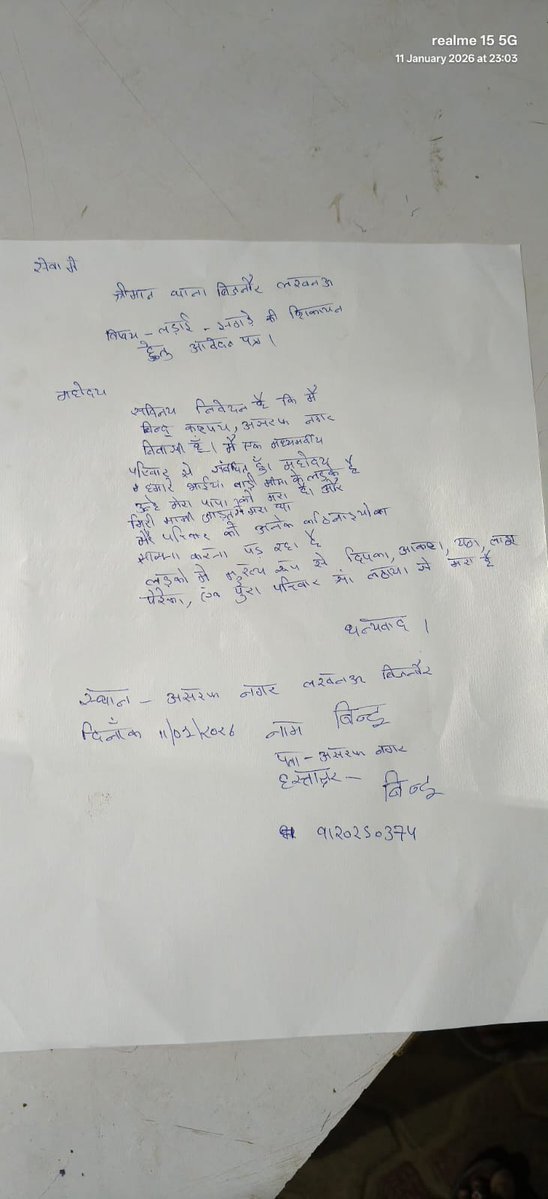 realme 15 5G
11 January 2026 at 23:03
सेवा में
श्रीमान थाना बिजनौर लखनऊ
विषय - लड़ाई - झगड़े की शिकायत
हेतु आवेदन पत्र।
महोदय
सविनय निवेदन है कि मैं
बिन्दू कश्यप, असरफ नगर
निवासी हूँ। मैं एक मध्यमवर्गीय
परिवार से संबंधित हूँ। महोदय
हमारे भईया बड़ी मामा के लड़के है
उन्हे मेरा पापा को मारा है। और
मेरे परिवार को अनेक कठिनाइयों का
सामना करना पड़ रहा है
लड़को में मुख्य रूप से दिपका, आकाश,
पुरा परिवार मारा है
धन्यवाद।
स्थान - असरफ नगर लखनऊ बिजनौर
दिनाँक 11/01/2026 नाम बिन्दू
पता - असरफ नगर
हस्ताक्षर - बिन्दू